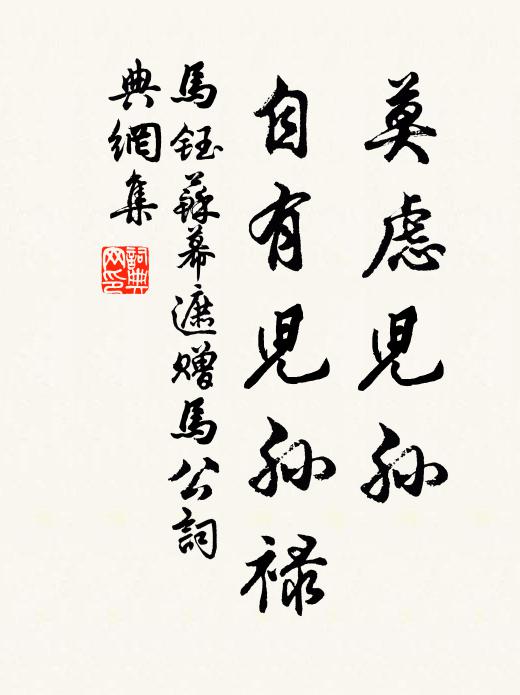 莫慮兒孫
自有兒孫禄
馬鈺蘇幕遮贈馬公詞
典網集
詞典網印